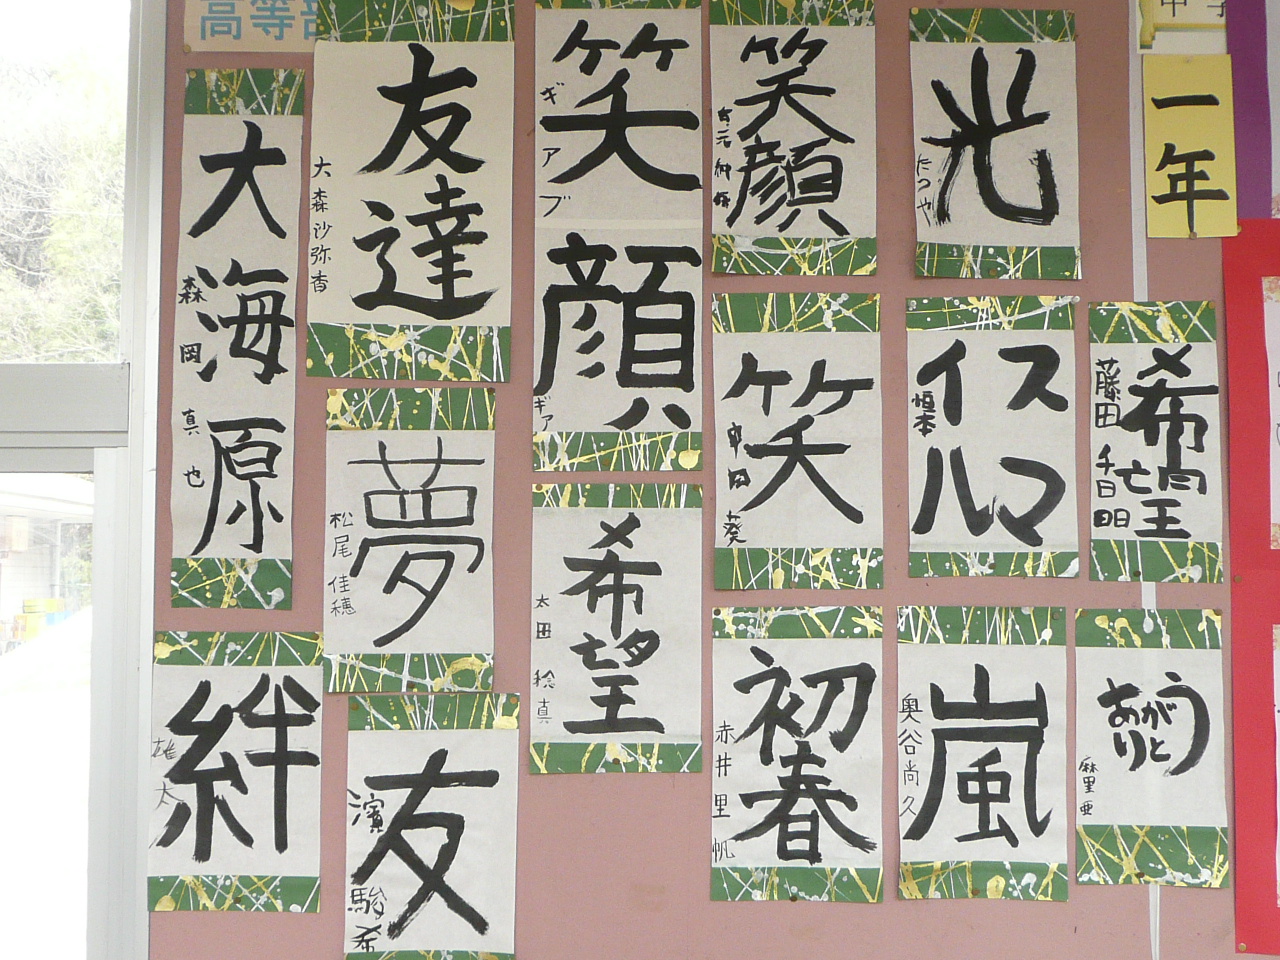 高等部
一年
光
たつや
笑顔
笑顔
ギアブ
ギア
友達
大森沙弥香
大海原
森岡真也
希望
藤田千日明
イスルマ
恒本
笑
葵
夢
松尾佳穂
希望
太田稔真
ありがとう
麻里亜
嵐
奥谷尚久
初春
赤井里帆
絆
雄太
友
濱駿希